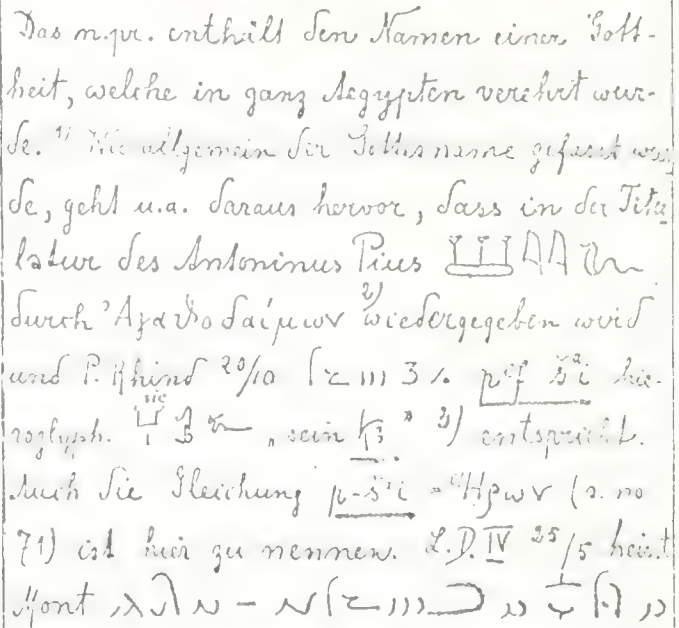 Das n.pr. enthält den Namen einer Gott-
heit, welche in ganz Aegypten verehrt wur-
de. 1) Wie allgemein der Gottesname gefasst wur
de, geht u.a. daraus hervor, dass in der Titu
latur des Antoninus Pius
durch Ἀγαθοδαίμων 2) wiedergegeben wird
und P. Rhind 20/10 pꜣf šꜣi hie-
roglyph. sic „sein kꜣ" 3) entspricht.
Auch die Gleichung p-šꜣi = Ἥρων (s. no
71) ist hier zu nennen. L.D. IV 25/5 heisst
Mont